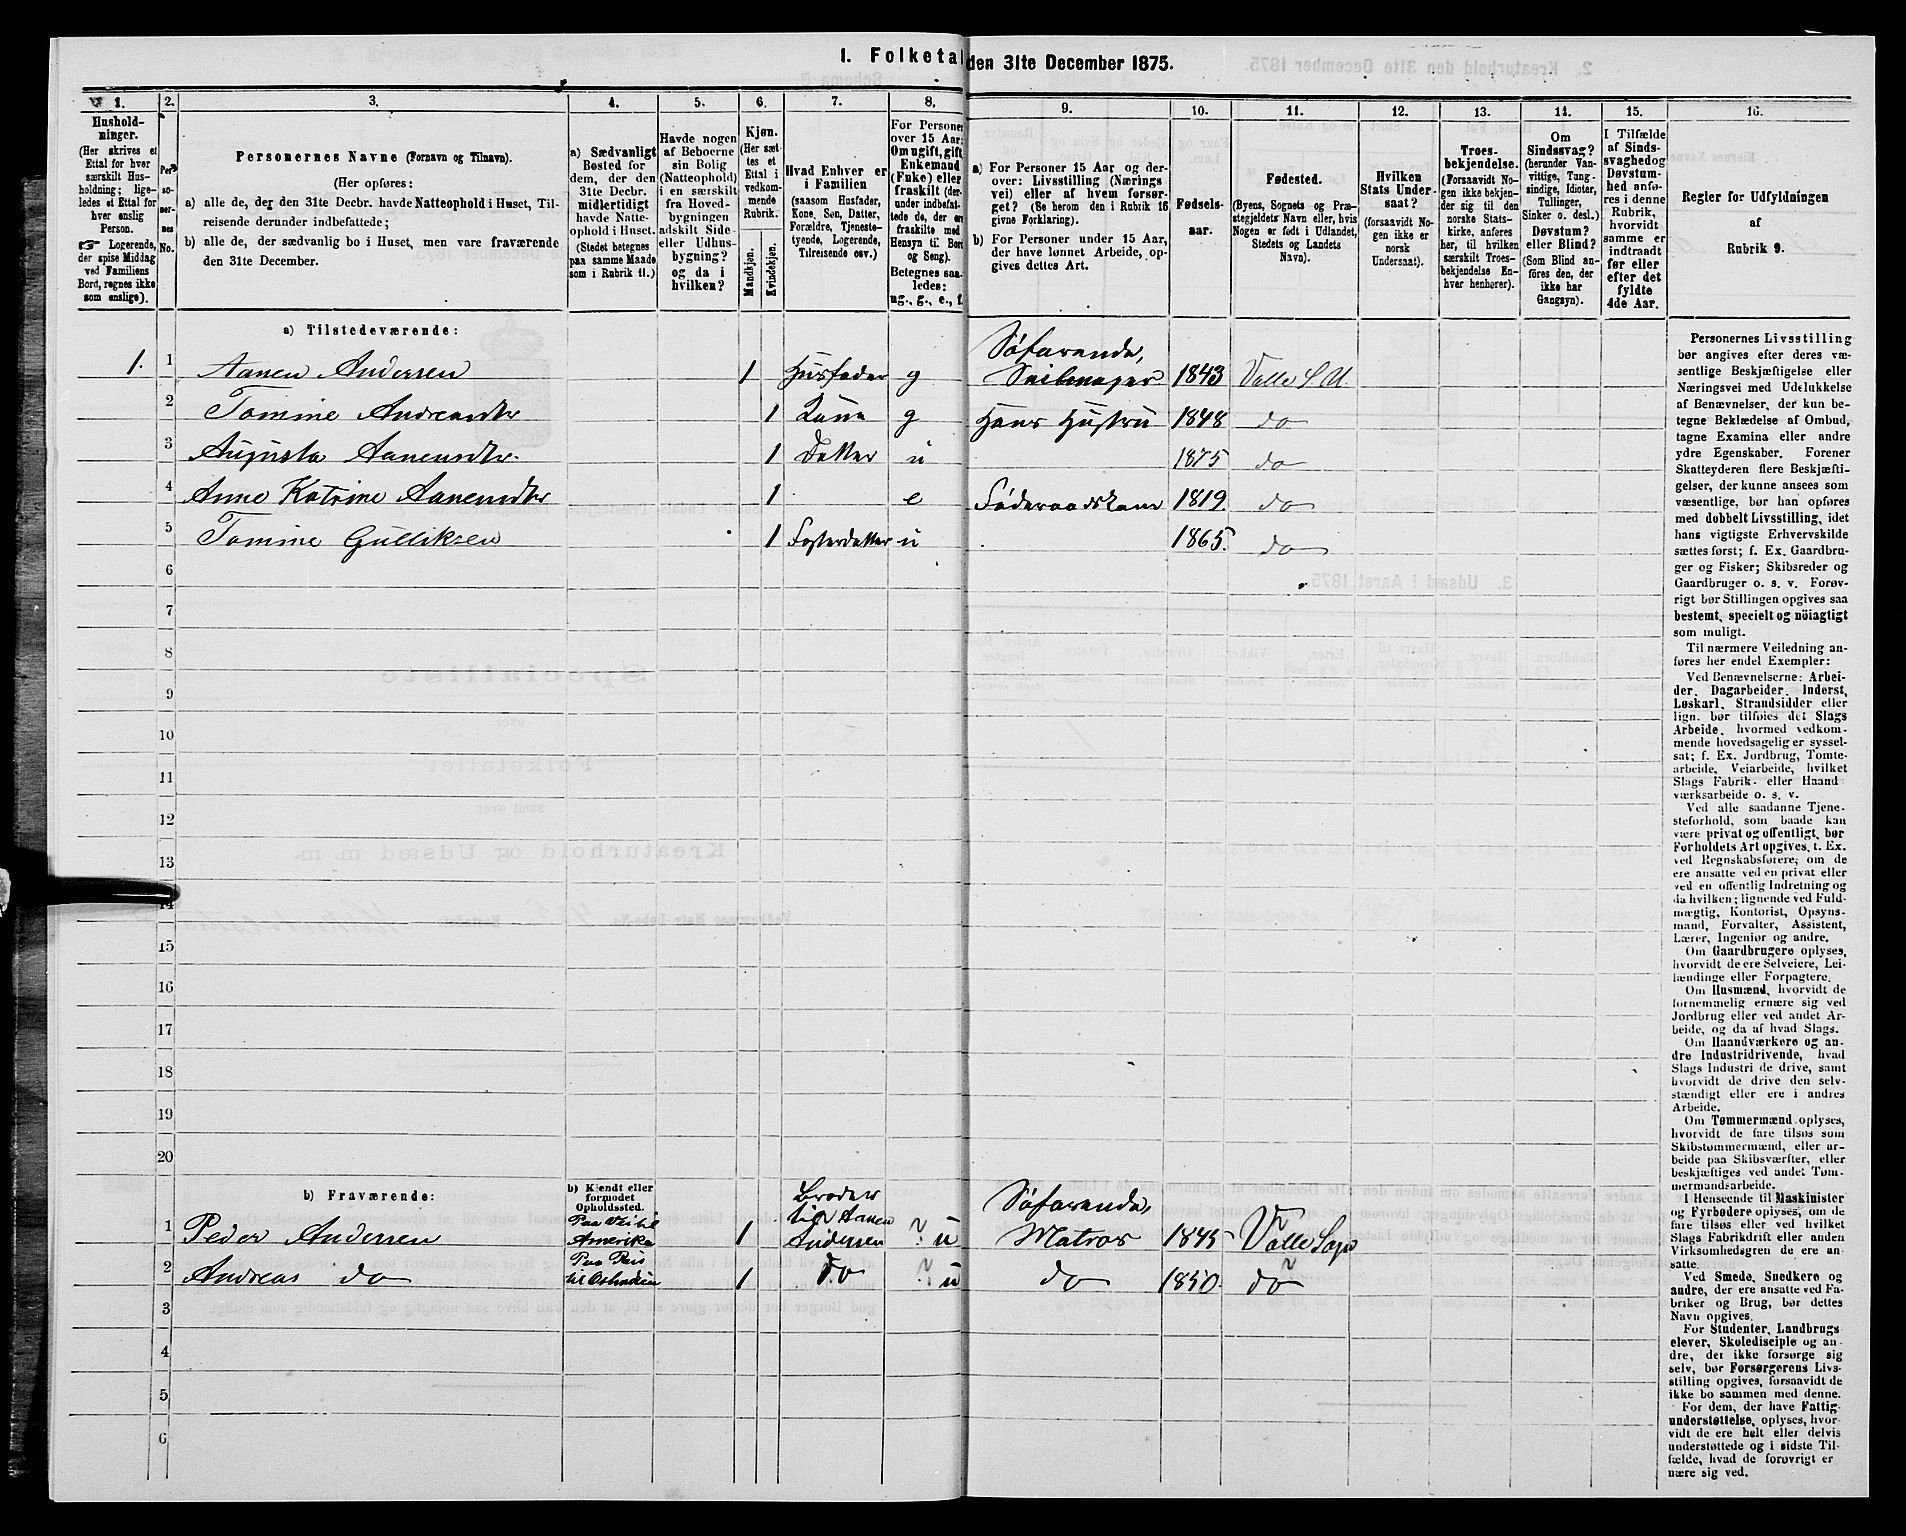 1. Folketal den 31te December 1875.
1. 2. 3. 4. 5. 6. 7. 8. 9. 10. 11. 12. 13. 14. 15. 16.
Hushold-
ninger.
(Her skrives et
Ettal for hver
særskilt Hus-
holdning; lige-
ledes et Ettal for
hver enslig
Person.
☞ Logerende,
der spise Middag
ved Familiens
Bord, regnes ikke
som enslige).
Per-
so-
ner-
nes
No.
Personernes Navne (Fornavn og Tilnavn).
(Her opføres:
a) alle de, der den 31te Decbr. havde Natteophold i Huset, Til-
reisende derunder indbefattede;
b) alle de, der sædvanlig bo i Huset, men vare fraværende
den 31te December.
a) Sædvanligt
Bosted for
dem, der den
31te Decbr.
midlertidigt
havde Natte-
ophold i Huset.
(Stedet betegnes
paa samme Maade
som i Rubrik 11.)
Havde nogen
af Beboerne
sin Bolig
(Natteophold)
i en særskilt
fra Hoved-
bygningen
adskilt Side-
eller Udhus-
bygning?
og da i
hvilken?
Kjøn.
(Her sæt-
tes et
Ettal i
vedkom-
mende
Rubrik.
Mandkjøn.
Kvindekjøn.
Hvad Enhver er
i Familien
(saasom Husfader,
Kone, Søn, Datter,
Forældre, Tjeneste-
tyende, Logerende,
Tilreisende osv.)
For Personer
over 15 Aar:
Om ugift, gift,
Enkemand
(Enke) eller
fraskilt (der-
under indbefat-
tede de, der ere
fraskilte med
Hensyn til Bord
og Seng).
Betegnes saa-
ledes:
ug., g., e., f.
a) For Personer 15 Aar og der-
over: Livsstilling (Nærings-
vei) eller af hvem forsør-
get? (Se herom den i Rubrik 16
givne Forklaring).
b) For Personer under 15 Aar,
der have lønnet Arbeide, op-
gives dettes Art.
Fødsels-
aar.
Fødested.
(Byens, Sognets og Præ-
stegjeldets Navn eller, hvis
Nogen er født i Udlandet,
Stedets og Landets
Navn).
Hvilken
Stats Under-
saat?
(forsaavidt No-
gen ikke er
norsk
Undersaat).
Troes-
bekjendelse.
(Forsaavidt No-
gen ikke bekjen-
der sig til den
norske Stats-
kirke, anføres
her, til hvilken
særskilt Troes-
bekjendelse En-
hver henhører).
Om
Sindssvag?
(herunder Van-
vittige, Tung-
sindige, Idioter,
Tullinger,
Sinker o. desl.)
Døvstum?
eller Blind?
(Som Blind an-
føres den, der
ikke har
Gangsyn).
I Tilfælde
af Sinds-
svaghed og
Døvstum-
hed anfø-
res i denne
Rubrik,
hvorvidt
samme er
indtraadt
før eller
efter det
fyldte
4de Aar.
Regler for Udfyldningen
af
Rubrik 9.
a) Tilstedeværende:
1. 1 Aanen Andersen 1 Husfader g Søfarende, 1843 Valle S U.
2 Tomine Andreasdtr 1 Kone g Hans Hustru 1848 do
3 Augusta Aanensdtr. 1 Datter u 1875 do
4 Anne Katrine Aanensdtr 1 e Føderaadskone 1819. do
5 Tomine Gulliksen 1 Fosterdatter u 1865. do
6
7
8
9
10
11
12
13
14
15
16
17
18
19
20
b) Fraværende:
b) Kjendt eller
formodet
Opholdssted.
1 Peder Andersen Amerika 1 Broder til Aanen Andersen ? u Søfarende, Matros 1845 Valle Sogn
2 Andreas do 1 do ? u do 1850. do
3
4
5
6
Personernes Livsstilling
bør angives efter deres væ-
sentlige Beskjæftigelse eller
Næringsvei med Udelukkelse
af Benævnelser, der kun be-
tegne Beklædelse af Ombud,
tagne Examina eller andre
ydre Egenskaber. Forener
Skatteyderen flere Beskjæfti-
gelser, der kunne ansees som
væsentlige, bør han opføres
med dobbelt Livsstilling, idet
hans vigtigste Erhvervskilde
sættes først; f. Ex. Gaardbru-
ger og Fisker; Skibsreder og
Gaardbruger o. s. v. Forøv-
rigt bør Stillingen opgives saa
bestemt, specielt og nöiagtigt
som muligt.
Til nærmere Veiledning an-
føres her endel Exempler:
Ved Benævnelserne: Arbei-
der, Dagarbeider, Inderst,
Løskarl, Strandsidder eller
lign. bør tilføies det Slags
Arbeide, hvormed vedkom-
mende hovedsagelig er syssel-
sat; f. Ex. Jordbrug, Tomte-
arbeide, Veiarbeide, hvilket
Slags Fabrik- eller Haand-
værksarbeide o. s. v.
Ved alle saadanne Tjene-
steforhold, som baade kan
være privat og offentligt, bør
Forholdets Art opgives, t. Ex.
ved Regnskabsførere, om de
ere ansatte ved en privat eller
ved en offentlig Indretning og
da hvilken; lignende ved Fuld-
mægtig, Kontorist, Opsyns-
mand, Forvalter, Assistent,
Lærer, Ingeniør og andre.
Om Gaardbrugere oplyses,
hvorvidt de ere Selveiere, Lei-
lændinge eller Forpagtere.
Om Husmænd, hvorvidt de
fornemmelig ernære sig ved
Jordbrug eller ved andet Ar-
beide, og da af hvad Slags.
Om Haandværkere og an-
dre Industridrivende, hvad
Slags Industri de drive, samt
hvorvidt de drive den selv-
stændigt eller ere i andres
Arbeide.
Om Tømmermænd oplyses,
hvorvidt de fare tilsøs som
Skibstømmermænd, eller ar-
beide paa Skibsværfter, eller
beskjæftiges ved andet Tøm-
mermandsarbeide.
I Henseende til Maskinister
og Fyrbødere oplyses, om de
fare tilsøs eller ved hvilket
Slags Fabrikdrift eller anden
Virksomhedsgren de ere an-
satte.
Ved Smede, Snedkere og
andre, der ere ansatte ved Fa-
briker og Brug, bør dettes
Navn opgives.
For Studenter, Landbrugs-
elever, Skoledisciple og an-
dre, det ikke forsørge sig
selv, bør Forsørgerens Livs-
stilling opgives, forsaavidt de
ikke bo sammen med denne.
For dem, der have Fattig-
understøttelse, oplyses, hvor-
vidt de ere helt eller delvis
understøttede og i sidste Til-
fælde, hvad de forøvrigt er
nære sig ved.